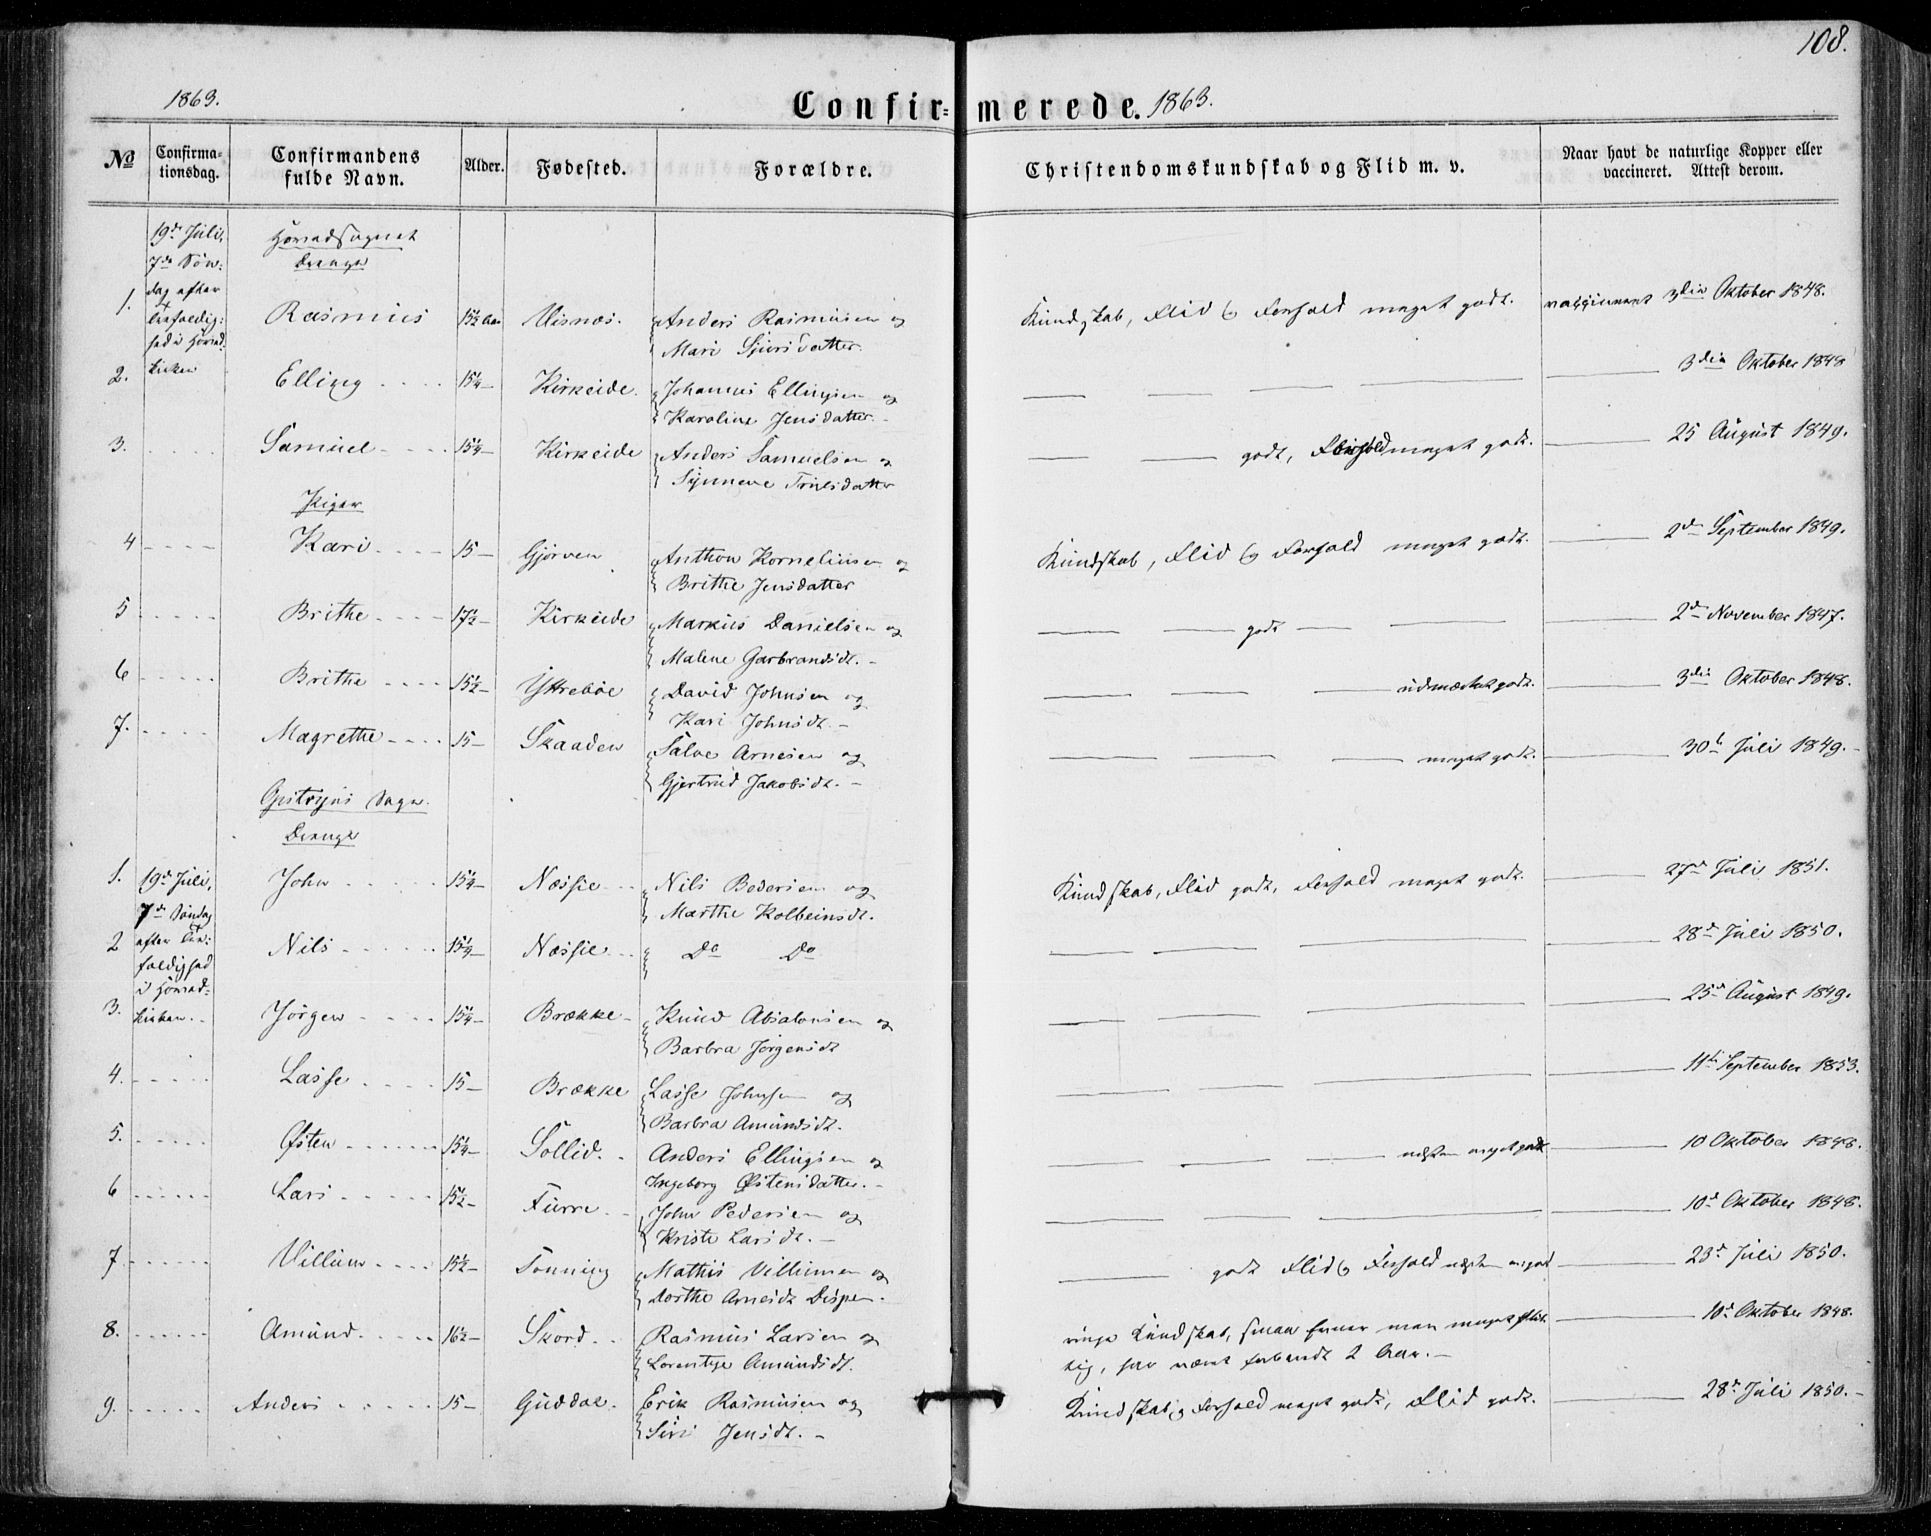 108.
1863.
Confir=merede. 1863.
No
Confirma=tionsdag.
Confirmandens fulde Navn.
Alder.
Fødested.
Forældre.
Christendomskundskab og Flid m. v.
Naar havt de naturlige Kopper eller vaccineret. Attest derom.
19de Juli,
7de Søn=
dag efter
Trefoldig=
hed i
kirken
Drenge
1. Rasmus 15½ Aar Visnæs. Anders Rasmusen og
Mari Sjursdatter.
Kundskab, Flid og Forhold meget godt. vaccineret 3die Oktober 1848.
2. Elling 15¼ Kirkeide. Johannes Ellingsen og
Karoline Jensdatter.
3die Oktober 1848
3. Samuel 15¼ Kirkeide Anders Samuelsen og
Synneve Trulsdatter
godt, Forhold meget godt. 25 August 1849.
Piger
4 Kari 15 Gjørven Anthon Kornelius og
Brithe Jensdatter
Kundskab, Flid og Forhold meget godt. 2den September 1849.
5 Brithe 17½ Kirkeide Markus Danielsen og
Malene Garbrandsdt.
godt 2den November 1847.
6 Brithe 15½ Yttrebøe David Johnsen og
Kari Johnsdt.
udmærket godt. 3die Oktober 1848.
7. Magrethe 15 Skaaden Salve Arnesen og
Gjertrud Jakobsdt.
meget godt. 30te Juli 1849.
Opstryns Sogn.
Drenge
1. 19de Juli, John 15¼ Næsse Nils Pedersen og
7de Søndag
Marthe Kolbeinsdt.
Kundskab, Flid godt, Forhold meget godt. 27de Juli 1851.
2 efter Tre=
foldighed
i
Nils 15¼ Næsse Do Do
28de Juli 1850.
3. kirken. Jørgen 15¼ Brække Knud Absalonsen og
Barbra Jørgensdt
25de August 1849.
4. Lasse 15 Brække Lasse Johnsen og
Barbra Amundsdt.
11te September 1853.
5. Østen 15¼ Sollid. Anders Ellingsen og
Ingeborg Østensdatter.
næsten meget godt 10 Oktober 1848.
6 Lars 15½ Furre John Pedersen og
Kriste Larsdt.
10de Oktober 1848.
7 Villum 15½ Tonning Mathis Villumsen og
Dorthe Arnesdt
godt Flid og Forhold næsten 23de Juli 1850.
8. Amund 16½ Skord Rasmus Larsen og
Lorentse Amundsdt.
ringe Kundskab, meget flit=
tig, har været 2 Aar. 10de Oktober 1848.
9. Anders 15 Guddal. Erik Rasmusen og
Siri Jensdt.
Kundskab og Forhold meget godt, Flid godt. 28de Juli 1850.